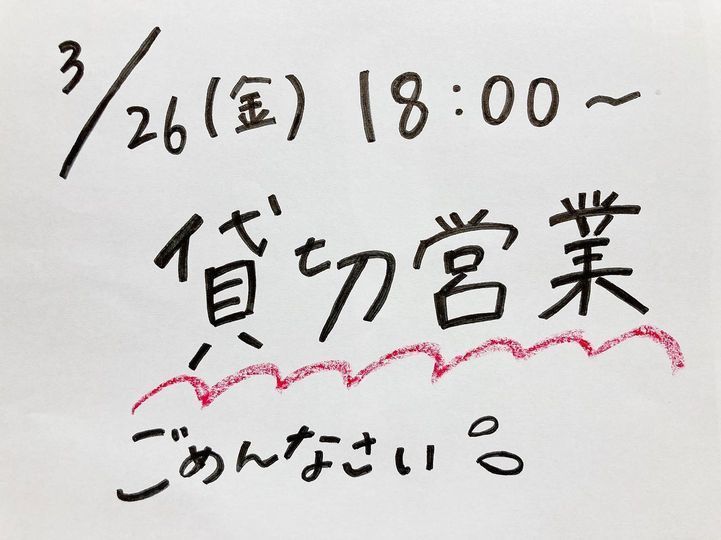 3/26(金) 18:00~
貸切営業
ごめんなさい